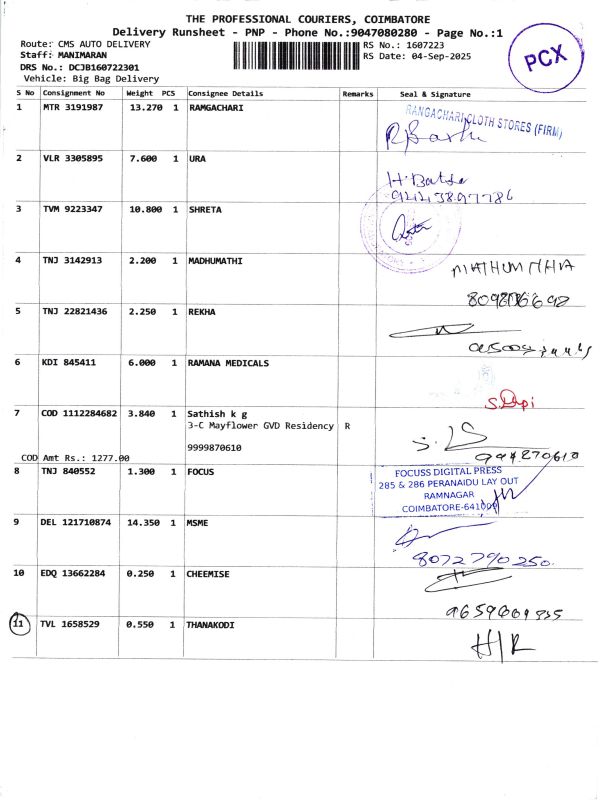 THE PROFESSIONAL COURIERS, COIMBATORE
Delivery Runsheet - PNP - Phone No.:9047080280 - Page No.:1
Route: CMS AUTO DELIVERY
Staff: MANIMARAN
DRS No.: DCJB160722301
Vehicle: Big Bag Delivery
RS No.: 1607223
RS Date: 04-Sep-2025
PCX
S No Consignment No Weight PCS Consignee Details Remarks Seal & Signature
1 MTR 3191987 13.270 1 RAMGACHARI
RANGACHARI CLOTH STORES (FIRM)
2 VLR 3305895 7.600 1 URA
3 TVM 9223347 10.800 1 SHRETA
4 TNJ 3142913 2.200 1 MADHUMATHI
5 TNJ 22821436 2.250 1 REKHA
6 KDI 845411 6.000 1 RAMANA MEDICALS
7 COD 1112284682 3.840 1 Sathish k g
3-C Mayflower GVD Residency R
9999870610
COD Amt Rs.: 1277.00
8 TNJ 840552 1.300 1 FOCUS
FOCUSS DIGITAL PRESS
285 & 286 PERANAIDU LAY OUT
RAMNAGAR
COIMBATORE-641009
9 DEL 121710874 14.350 1 MSME
8072790250
10 EDQ 13662284 0.250 1 CHEEMISE
11 TVL 1658529 0.550 1 THANAKODI
H/R